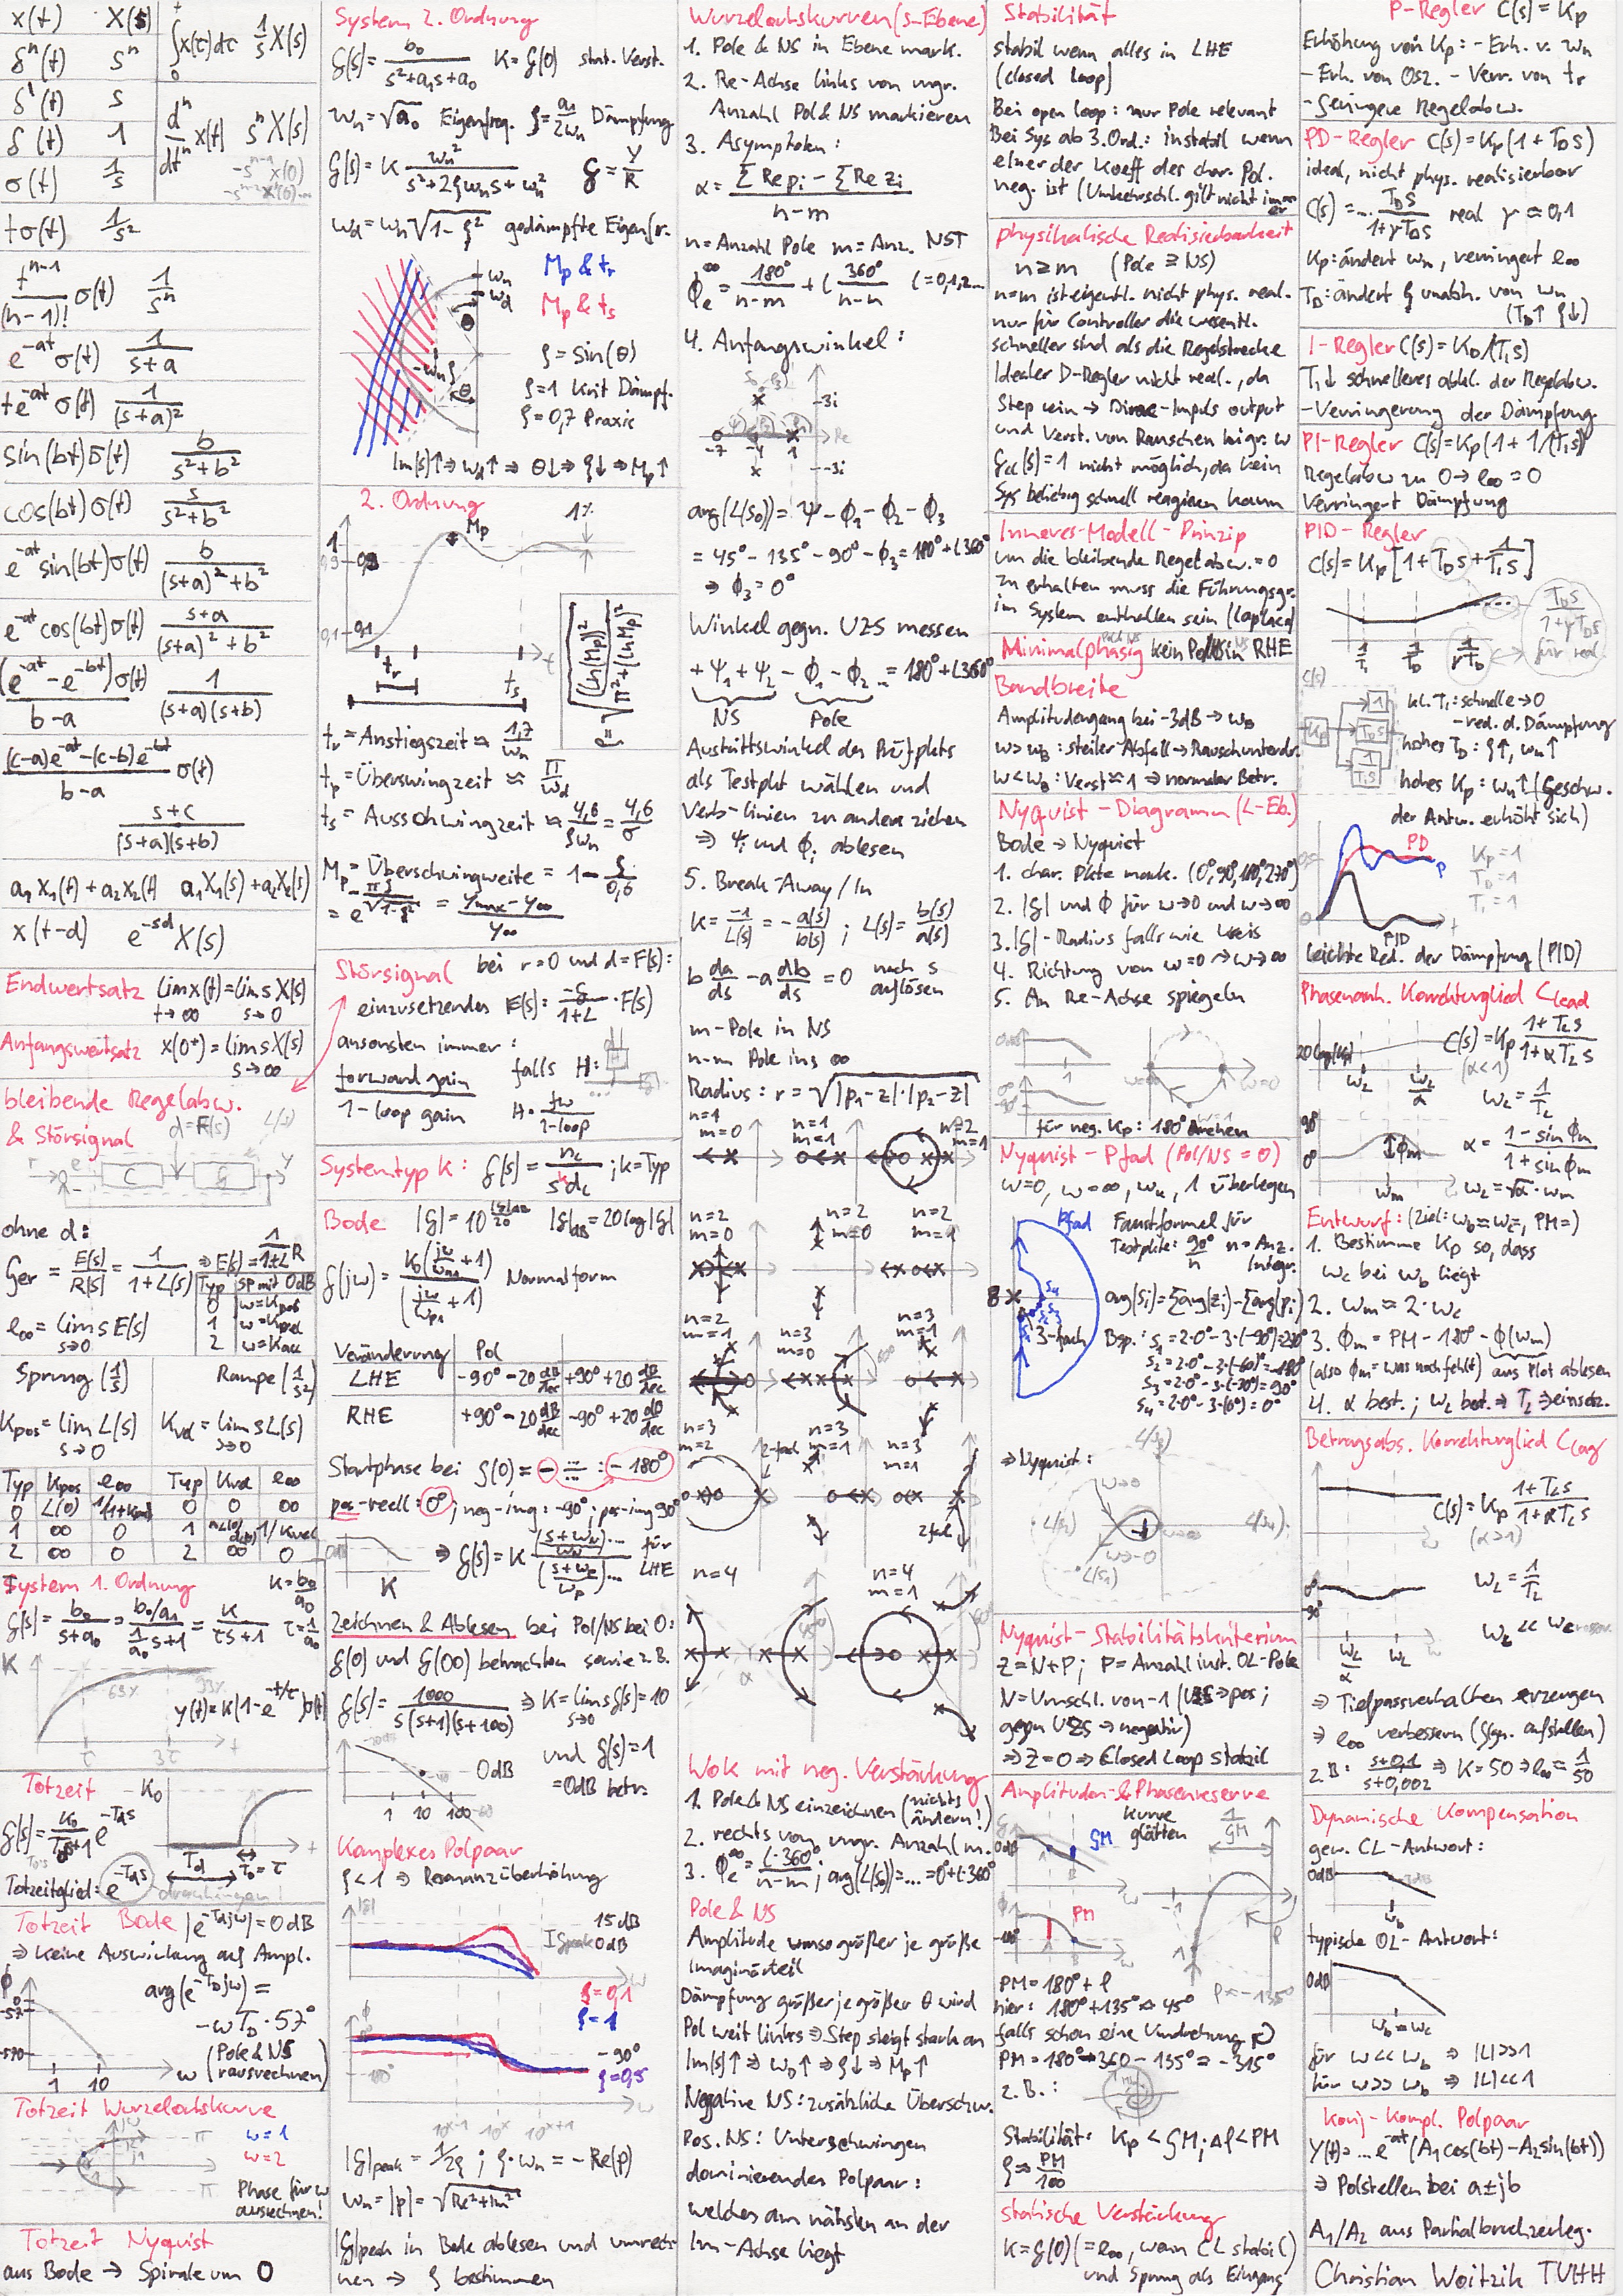 x(t) X(s)
δⁿ(t) sⁿ
δ'(t) s
δ(t) 1
σ(t) 1/s
∫x(τ)dτ 1/s X(s)
dⁿ/dtⁿ x(t) sⁿX(s)
-sⁿ⁻¹x(0)
tσ(t) 1/s²
tⁿ⁻¹/(n-1)! σ(t) 1/sⁿ
e^-at σ(t) 1/(s+a)
te^-at σ(t) 1/(s+a)²
sin(bt)σ(t) b/(s²+b²)
cos(bt)σ(t) s/(s²+b²)
e^-at sin(bt)σ(t) b/((s+a)²+b²)
e^-at cos(bt)σ(t) (s+a)/((s+a)²+b²)
(e^-at - e^-bt)σ(t)/(b-a) 1/((s+a)(s+b))
((c-a)e^-at-(c-b)e^-bt)/(b-a) σ(t)
(s+c)/((s+a)(s+b))
a₁x₁(t)+a₂x₂(t) a₁X₁(s)+a₂X₂(s)
x(t-d) e^-sd X(s)
Endwertsatz lim x(t)=lim s X(s)
t→∞ s→0
Anfangswertsatz x(0⁺)=lim s X(s)
s→∞
bleibende Regelabw.
& Störsignal d=F(s) L(s)
r e C G Y
ohne d:
Ger = E(s)/R(s) = 1/(1+L(s)) ⇒ E(s)=1/(1+L) R
e∞ = lim s E(s)
s→0
Typ SP mit 0dB
0 w=Kpos
1 w=Kvel
2 w=Kacc
Sprung (1/s) Rampe (1/s²)
Kpos=lim L(s) Kvel=lim sL(s)
s→0 s→0
Typ Kpos e∞ Typ Kvel e∞
0 L(0) 1/(1+Kpos) 0 0 ∞
1 ∞ 0 1 1/Kvel
2 ∞ 0 2 ∞ 0
System 1. Ordnung K=b₀/a₀
G(s)= b₀/(s+a₀) = (b₀/a₀)/(1/a₀ s+1) = K/(τs+1) τ=1/a₀
K 63%
y(t)=K(1-e^-t/τ)σ(t)
τ 3τ t
Totzeit K₀
G(s)= K₀/(T₀s+1) e^-Tds
Td T₀=τ
Totzeitglied: e^-Tds
Totzeit Bode |e^-Tdjw|=0dB
⇒ keine Auswirkung auf Ampl.
arg(e^-TDjw)=
-wTD·57°
(Pole & NS rausrechnen)
-57
-570
1 10 w
Totzeit Wurzelortskurve
w=1
w=2
Phase für w
ausrechnen!
Totzeit Nyquist
aus Bode → Spirale um 0
System 2. Ordnung
G(s)= b₀/(s²+a₁s+a₀) K=G(0) stat. Verst.
wn=√a₀ Eigenfreq. ζ=a₁/2wn Dämpfung
G(s)=K wn²/(s²+2ζwns+wn²) G=Y/R
wd=wn√(1-ζ²) gedämpfte Eigenfr.
wn
wd
Mp & tr
Mp & ts
-wnζ
ζ=sin(θ)
ζ=1 Krit Dämpf.
ζ=0,7 Praxis
Im(s)↑⇒wd↑⇒θ↓⇒ζ↓⇒Mp↑
2. Ordnung
1 Mp 1%
0,9
0,1
tr ts t
ζ=√((ln(Mp))²/(π²+(ln Mp)²))
tr=Anstiegszeit ≈ 1,7/wn
tp=Überswingzeit ≈ π/wd
ts=Ausschwingzeit ≈ 4,6/ζwn = 4,6/σ
Mp=Überschwingweite = 1-ζ/0,6
= e^(-πζ/√(1-ζ²)) = (ymax-y∞)/y∞
Störsignal bei r=0 und d=F(s):
einzusetzendes E(s)= -G/(1+L) · F(s)
ansonsten immer:
forward gain
1-loop gain
falls H:
H= fw/(1-loop)
Systemtyp k: G(s)= nc/(s^k dc) ; k=Typ
Bode |G|=10^(|G|dB/20) |G|dB=20log|G|
G(jw)= K₀(jw/wn1+1)/(jw/wp1+1) Normalform
Veränderung Pol
LHE -90° -20 dB/dec +90° +20 dB/dec
RHE +90° -20 dB/dec -90° +20 dB/dec
Startphase bei G(0)= - ... : -180°
pos-reell: 0°; neg-img: -90°; pos-img 90°
0dB K
⇒ G(s)=K ((s+wn)/wn).../((s+wp)/wp)... für LHE
Zeichnen & Ablesen bei Pol/NS bei 0:
G(0) und G(∞) betrachten sowie z.B.
G(s)= 1000/(s(s+1)(s+100)) ⇒ K=lim sG(s)=10
s→0
und G(s)=1
=0dB betr.
0dB
1 10 100
Komplexes Polpaar
ζ<1 ⇒ Resonanzüberhöhung
15dB
Gpeak 0dB
ζ=0,1
ζ=1
-90°
ζ=0,5
10^x-1 10^x 10^x+1
|G|peak = 1/2ζ ; ζ·wn = -Re(p)
wn=|p|=√(Re²+Im²)
|G|peak in Bode ablesen und umrech-
nen → ζ bestimmen
Wurzelortskurven (s-Ebene)
1. Pole & NS in Ebene mark.
2. Re-Achse links von ungr.
Anzahl Pol & NS markieren
3. Asymptoten:
α= (ΣRe pi - ΣRe zi)/(n-m)
n=Anzahl Pole m=Anz. NST
ϕe^∞ = 180°/(n-m) + l 360°/(n-m) l=0,1,2...
4. Anfangswinkel:
3i
-7 -4 1 Re
-3i
arg(L(s₀))= Ψ-ϕ₁-ϕ₂-ϕ₃
=45°-135°-90°-ϕ₃=180°+l360°
⇒ ϕ₃=0°
Winkel gegn. UZS messen
+Ψ₁+Ψ₂-ϕ₁-ϕ₂...=180°+l360°
NS Pole
Austrittswinkel des Prüfpkts
als Testpkt wählen und
Verb-linien zu andern ziehen
⇒ Ψi und ϕi ablesen
5. Break-Away/In
K= -1/L(s) = -a(s)/b(s) ; L(s)= b(s)/a(s)
b da/ds - a db/ds = 0 nach s auflösen
m-Pole in NS
n-m Pole ins ∞
Radius: r=√(|p₁-z|·|p₂-z|)
n=1 m=0 n=1 m=1 n=2 m=1
n=2 m=0 n=2 m=0 n=2 m=1
n=2 m=1 n=3 m=0 n=3 m=1
n=3 m=2 2-fach n=3 m=1 n=3 m=1
2fach
n=4 n=4 m=1
Wok mit neg. Verstärkung
1. Pole & NS einzeichnen (nichts ändern!)
2. rechts von ungr. Anzahl m.
3. ϕe^∞ = l·360°/(n-m) ; arg(L(s₀))=...=0°+l·360°
Pole & NS
Amplitude umso größer je größe
Imaginärteil
Dämpfung größer je größer θ wird
Pol weit links ⇒ Step steigt stark an
Im(s)↑ ⇒ wD↑ ⇒ ζ↓ ⇒ Mp↑
Negative NS: zusätzliche Überschw.
Pos. NS: Unterschwingen
dominierenden Polpaar:
welches am nähsten an der
Im-Achse liegt
Stabilität
stabil wenn alles in LHE
(closed loop)
Bei open loop: nur Pole relevant
Bei Sys ab 3.Ord.: instabil wenn
einer der Koeff des char. Pol.
neg. ist (Umkehrschl. gilt nicht immer
physikalische Realisierbarkeit
n≥m (Pole ≥ NS)
n=m ist eigentl. nicht phys. real.
nur für Controller die wesentl.
schneller sind als die Regelstrecke
Idealer D-Regler nicht real., da
Step rein → Dirac-Impuls output
und Verst. von Rauschen bei gr. w
Gcl(s)=1 nicht möglich, da kein
Sys beliebig schnell reagieren kann
Inneres-Modell-Prinzip
um die bleibende Regelabw.=0
zu erhalten muss die Führungsgr.
im System enthalten sein (Laplace)
Minimalphasig kein Pol/NS in RHE
Bandbreite
Amplitudengang bei -3dB → wB
w>wB: steiler Abfall → Rauschunterdr.
w<wB: Verst≈1 ⇒ normaler Betr.
Nyquist-Diagramm (L-Eb.)
Bode → Nyquist
1. char. Pkte mark. (0°,90°,180°,270°)
2. |G| und ϕ für w→0 und w→∞
3. |G|-Radius falls wie Kreis
4. Richtung von w=0 → w→∞
5. An Re-Achse spiegeln
0dB
1
w=∞ w=0
w=1
für neg. Kp: 180° drehen
Nyquist-Pfad (Pol/NS=0)
w=0, w=∞, wn, 1 überlegen
Pfad
Faustformel für
Testpkte: 90°/n n=Anz. Integr.
arg(si)=Σarg(zi)-Σarg(pi)
3-fach
Bsp.: s₁=2·0°-3·(-90°)=270°
s₂=2·0°-3·(-60°)=180°
s₃=2·0°-3·(-30°)=90°
s₄=2·0°-3·(0°)=0°
⇒ Nyquist:
L(s₃)
L(s₂) L(s₄)
L(s₁)
Nyquist-Stabilitätskriterium
Z=N+P; P=Anzahl inst. OL-Pole
N=Umschl. von -1 (UZS⇒pos;
gegen UZS → negativ)
⇒ Z=0 ⇒ Closed Loop stabil
Amplituden- & Phasenreserve
Kurve
glätten
1/GM
0dB GM
-1
PM
PM=180°+φ
hier: 180°+135° ⇒ 45° φ=-135°
falls schon eine Umdrehung
PM=180°+360-135° = -315°
z.B.:
Stabilität: Kp<GM; Δφ<PM
ζ ≈ PM/100
statische Verstärkung
K=G(0) (=e∞, wenn CL stabil)
und Sprung als Eingang
P-Regler C(s)=Kp
Erhöhung von Kp: - Erh. v. wn
-Erh. von Osz. - Verr. von tr
-Geringere Regelabw.
PD-Regler C(s)=Kp(1+TDs)
ideal, nicht phys. realisierbar
C(s)=... TDs/(1+γTDs) real γ≈0,1
Kp: ändert wn, verringert e∞
TD: ändert ζ unabh. von wn
(TD↑ ζ↓)
I-Regler C(s)=KD/(TIs)
TI↓ schnelleres abkl. der Regelabw.
-Verringerung der Dämpfung
PI-Regler C(s)=Kp(1+1/(TIs)
Regelabw zu 0 → e∞=0
Verringert Dämpfung
PID-Regler
C(s)=Kp[1+TDs+1/TIs]
1/TI 1/TD 1/γTD
TDs/(1+γTDs)
für real.
C(s)
Kp 1 TDs 1/TIs
kl. TI: schnelle→0
-red. d. Dämpfung
hohes TD: ζ↑, wn↑
hohes Kp: wn↑ (Geschw.
der Antw. erhöht sich)
PD
P
PID
Kp=1
TD=1
TI=1
leichte Red. der Dämpfung (PID)
Phasenanh. Korrekturglied Clead
20log(Kp) C(s)=Kp (1+TLs)/(1+αTLs)
(α<1)
wL wL/α
wL=1/TL
90°
0° ϕm
α= (1-sinϕm)/(1+sinϕm)
wm wL=√α·wm
Entwurf: (Ziel: wb≈wc, PM=)
1. Bestimme Kp so, dass
wc bei wb liegt
2. wm≈2·wc
3. ϕm=PM-180°-ϕ(wm)
(also ϕm=was noch fehlt) aus Plot ablesen
4. α best.; wL best. ⇒ TL ⇒ einsetz.
Betragsabs. Korrekturglied Clag
C(s)=Kp (1+TLs)/(1+αTLs)
(α>1)
wL=1/TL
0°
-90°
wL<<wc
wL/α wL
⇒ Tiefpassverhalten erzeugen
⇒ e∞ verbessern (Glgn. aufstellen)
z.B: (s+0,1)/(s+0,002) ⇒ K=50 ⇒ e∞=1/50
Dynamische Kompensation
gew. CL-Antwort:
0dB -3dB
wb
typische OL-Antwort:
0dB
wb≈wc
für w<<wb ⇒ |L|>>1
für w>>wb ⇒ |L|<<1
Konj-Kompl. Polpaar
y(t)=...e^-at(A₁cos(bt)-A₂sin(bt))
⇒ Polstellen bei a±jb
A₁/A₂ aus Partialbruchzerleg.
Christian Woitzik TUHH